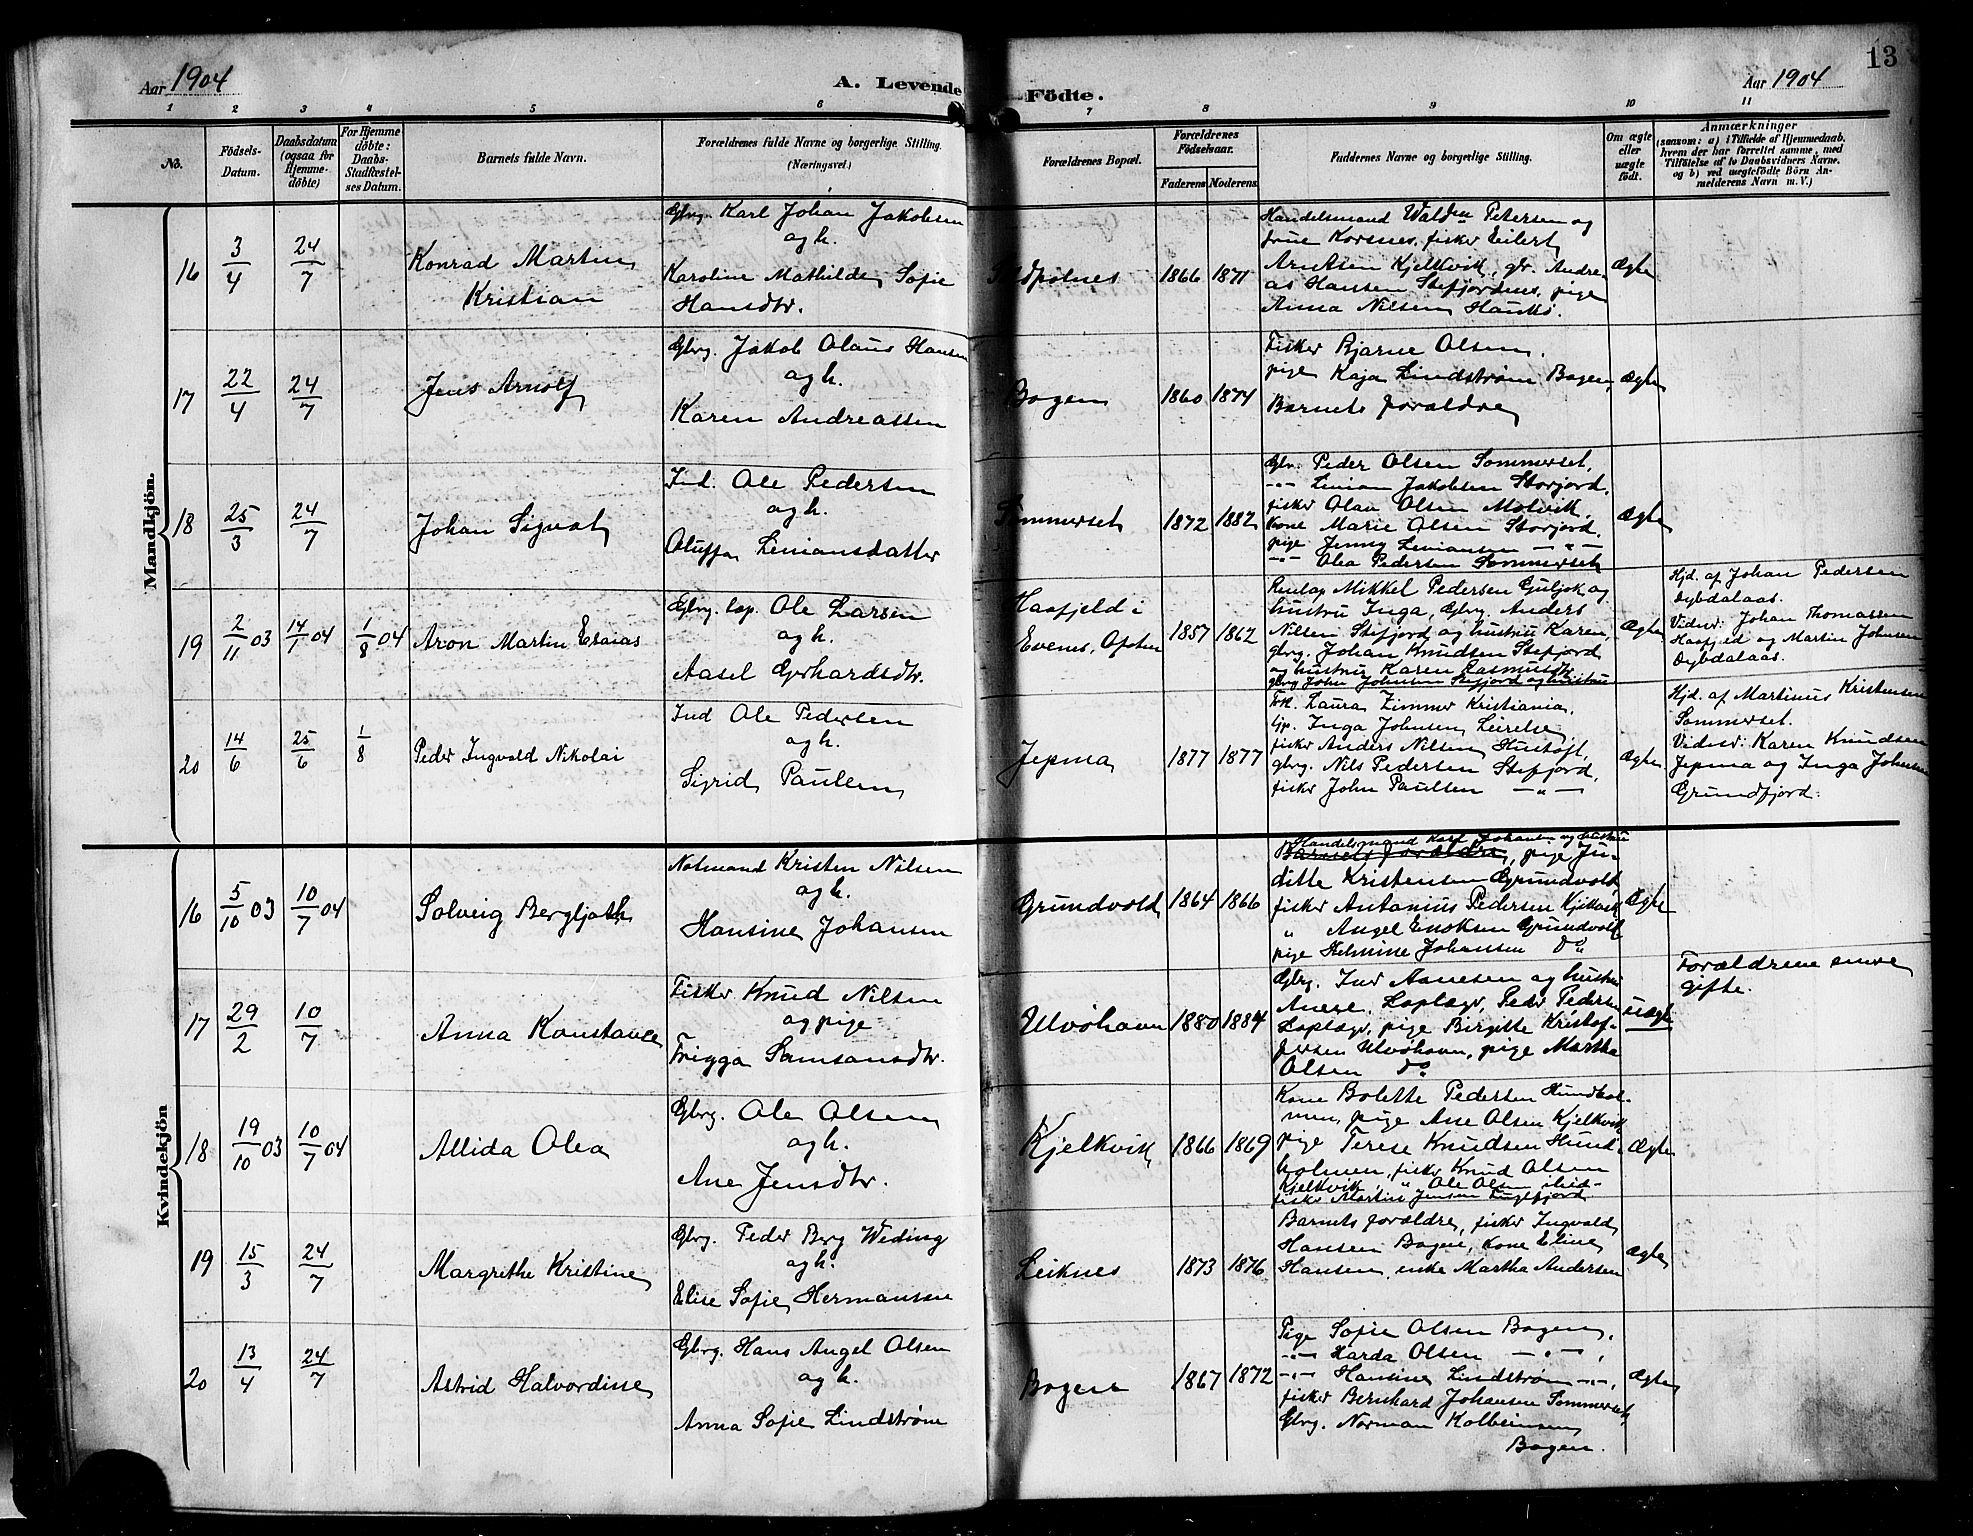 13
Aar 1904
A. Levende Födte.
Aar 1904
1 2 3 4 5 6 7 8 9 10 11
No.
Födsels-
Datum.
Daabsdatum
(ogsaa for
Hjemme-
döbte)
For Hjemme
döbte:
Daabs-
Stadfæstel-
ses Datum.
Barnets fulde Navn.
Forældrenes fulde Navne og borgerlige Stilling.
(Næringsvei.)
Forældrenes Bopæl.
Forældrenes
Födselsaar.
Faderens
Moderens
Faddernes Navne og borgerlige Stilling.
Om ægte
eller
uægte
födt.
Anmærkninger
(saasom: a) i Tilfælde af Hjemmedaab,
hvem der har forrettet samme, med
Tilföielse af to Daabsvidners Navne,
og b) ved uægtefödte Börn An-
melderens Navn m. V.)
Mandkjön.
16
3/4
24/7
Konrad Martin
Kristian
Gbrg. Karl Johan Jakobsen
og h.
Karoline Mathilde Sofie
Hansdtr.
1866
1871
Handelsmand Waldem Petersen og
frue Korsnes, fisker Eilert
Arntsen Kjelkvik, gbr. Andre-
as Hansen Stefjordnes, pige
Anna Nilsen
Ægte
17
22/4
24/7
Jens Arnolf
Gbrg. Jakob Olaus Hansen
og h.
Karen Andreassen
Bogen
1860
1874
Fisker Bjarne Olsen,
pige Kaja Lindstrøm Bogen,
Barnets forældre
Ægte
18
25/3
24/7
Johan Sigvat
Ind. Ole Pedersen
og h.
Oluffa Liniansdatter
Sommerset
1872
1882
Gbr. Peder Olsen Sommerset,
-"- Linian Jakobsen Storjord,
fisker Olav Olsen Molvik,
Kone Marie Olsen Storjord,
pige Jenny Liniansen -"-
-"- Olea Pedersen Sommerset
Ægte
19
2/11 03
14/1 04
1/8 04
Aron Martin Esaias
Gbrg. lap. Ole Larsen
og h.
Aasel Gerhardsdtr.
Haafjeld i
Evenes, Ofoten
1857
1862
Renlap Mikkel Pedersen Guljok og
hustru Inga, Gbrg. Anders
Nilsen Stefjord og hustru Karen,
gbrg. Johan Knudsen Stefjord
og hustru Karen Rasmusdtr.
gbrg John Johnsen Stefjord og hustru
Ægte
Hjd. af Johan Pedersen
Dybdalaas.
Vidner: Johan Thomassen
Haafjeld og Martin Johnsen
Dybdalaas.
20
14/6
25/6
1/8
Peder Ingvald Nikolai
Ind Ole Pedersen
og h.
Sigrid Paulsen
Jepma
1877
1877
Frk. Laura Zimmer Kristiania,
Inga Johnsen, Leirelse,
fisker Anders Nilsen
gbrg. Nils Pedersen Stefjord,
fisker John Paulsen -"-
Ægte
Hjd. af Martinus Kristensen
Sommerset.
Vidner: Karen Knudsen
Jepma og Inga Johnsen
Grundfjord.
Kvindekjön
16
5/10 03
10/7 04
Solveig Bergljoth
Notmand Kristen Nilsen
og h.
Hansine Johansen
Grundvold
1864
1866
Handelsmand Karl Johansen og hustru
Barnets forældre, pige Ju-
ditte Kristensen Grundvold,
fisker Antonius Pedersen Kjelkvik
" Angel Enoksen Grundvold
pige Helmine Johansen do
Ægte
17
29/2
10/7
Anna Konstance
Fisker Knud Nilsen
og pige
Frigga Samsonsdtr.
Ulvøhavn
1880
1884
Gbrg. Ivar Aanesen og hustru
Anne, Loplægr, Peder Pedersen
Loplægr, pige Birgitte Kristof-
fersen Ulvøhavn, pige Martha
Olsen do
uægte
Forældrene senere
gifte.
18
19/10 03
10/7 04
Allida Olea
Gbrg. Ole Olsen
og h.
Ane Jensdtr.
Kjelkvik
1866
1869
Kone Bolette Pedersen Hundhol-
men, pige Ane Olsen Kjelkvik
pige Terese Knudsen Hund-
holmen, fisker Knud Olsen
Kjelkvik, " Ole Olsen ibid-
fisker Martin Jensen
Ægte
19
15/3
24/7
Margrethe Kristine
Gbrg. Peder Berg Weding
og h.
Elise Sofie Hermansen
Leiknes
1873
1876
Barnets forældre, fisker Ingvald
Hansen Bogen, kone Eline
Hansen, enke Martha Andersen
Ægte
20
13/4
24/7
Astrid Halvordine
Gbrg. Hans Angel Olsen
og h.
Anna Sofie Lindstrøm
Bogen
1867
1872
Pige Sofie Olsen Bogen,
-"- Harda Olsen -"-,
-"- Hansine Lindstrøm -"-,
fisker Bernhard Johansen Sommerset,
Gbrg. Norman Kolbeinsen
Bogen.
Ægte